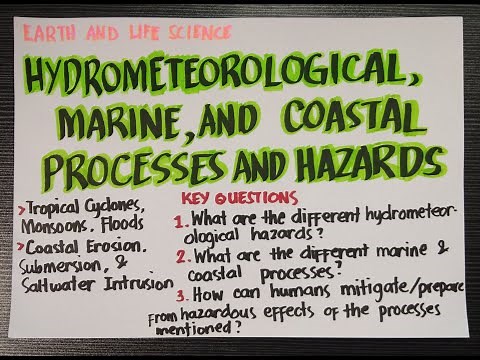 EARTH AND LIFE SCIENCE
HYDROMETEOROLOGICAL,
MARINE, AND COASTAL
PROCESSES AND HAZARDS
> Tropical Cyclones,
Monsoons, Floods
> Coastal Erosion,
Submersion, &
Saltwater Intrusion
KEY QUESTIONS
1. What are the different hydrometeor-
ological hazards?
2. What are the different marine &
coastal processes?
3. How can humans mitigate/prepare
from hazardous effects of the processes
mentioned?